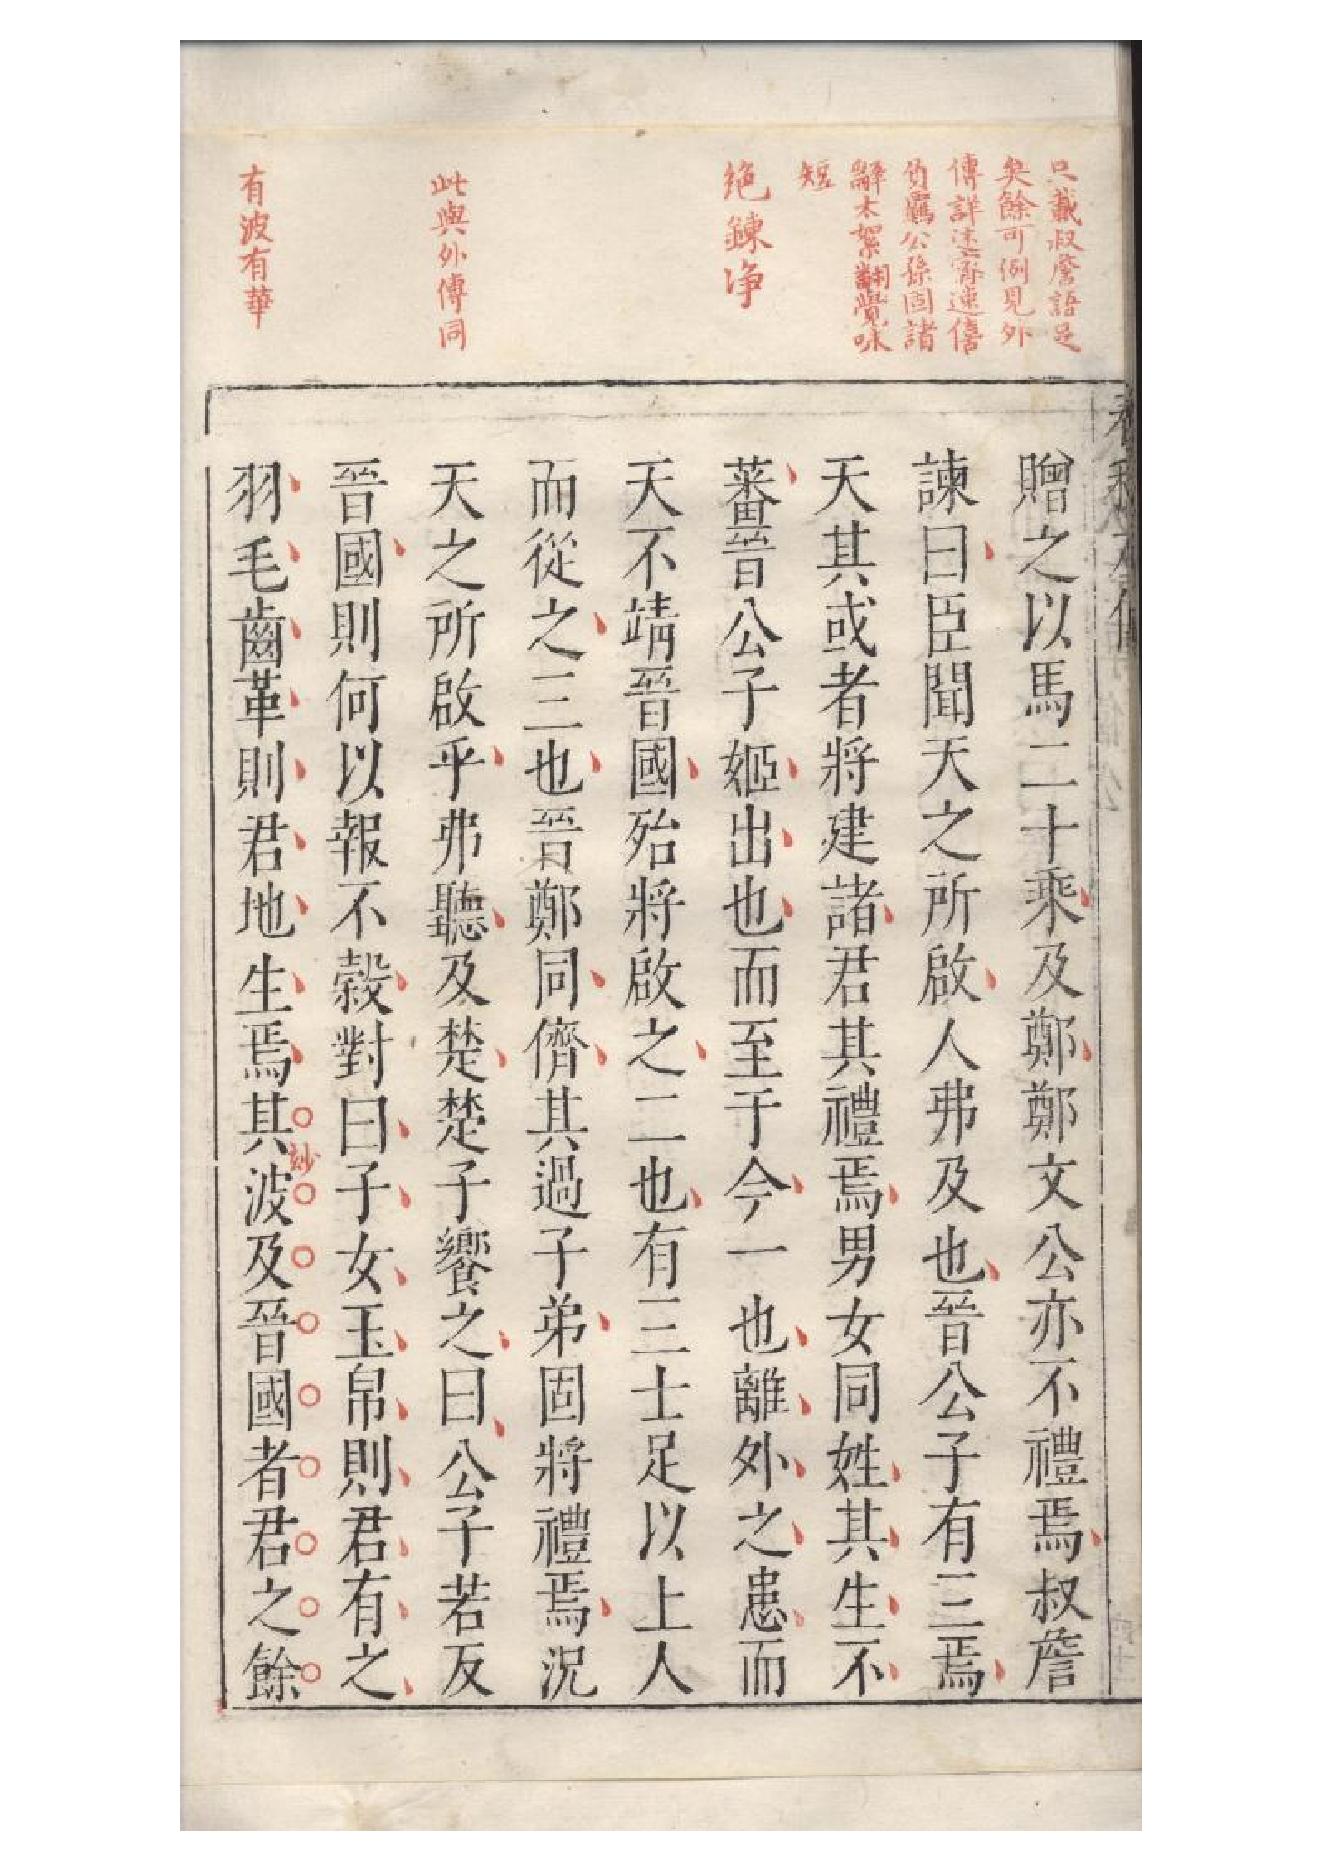 只載叔詹語足
矣餘可例見外
傳詳述甯速僖
負羈公孫固諸
辭太絮翻覺味
短
絶鍊净
此與外傳同
有波有華
贈之以馬二十乘及鄭鄭文公亦不禮焉叔詹
諫曰臣聞天之所啟人弗及也晉公子有三焉
天其或者將建諸君其禮焉男女同姓其生不
蕃晉公子姬出也而至于今一也離外之患而
天不靖晉國殆將啟之二也有三士足以上人
而從之三也晉鄭同儕其過子弟固將禮焉況
天之所啟乎弗聽及楚楚子饗之曰公子若反
晉國則何以報不榖對曰子女玉帛則君有之
羽毛齒革則君地生焉其波及晉國者君之餘
妙